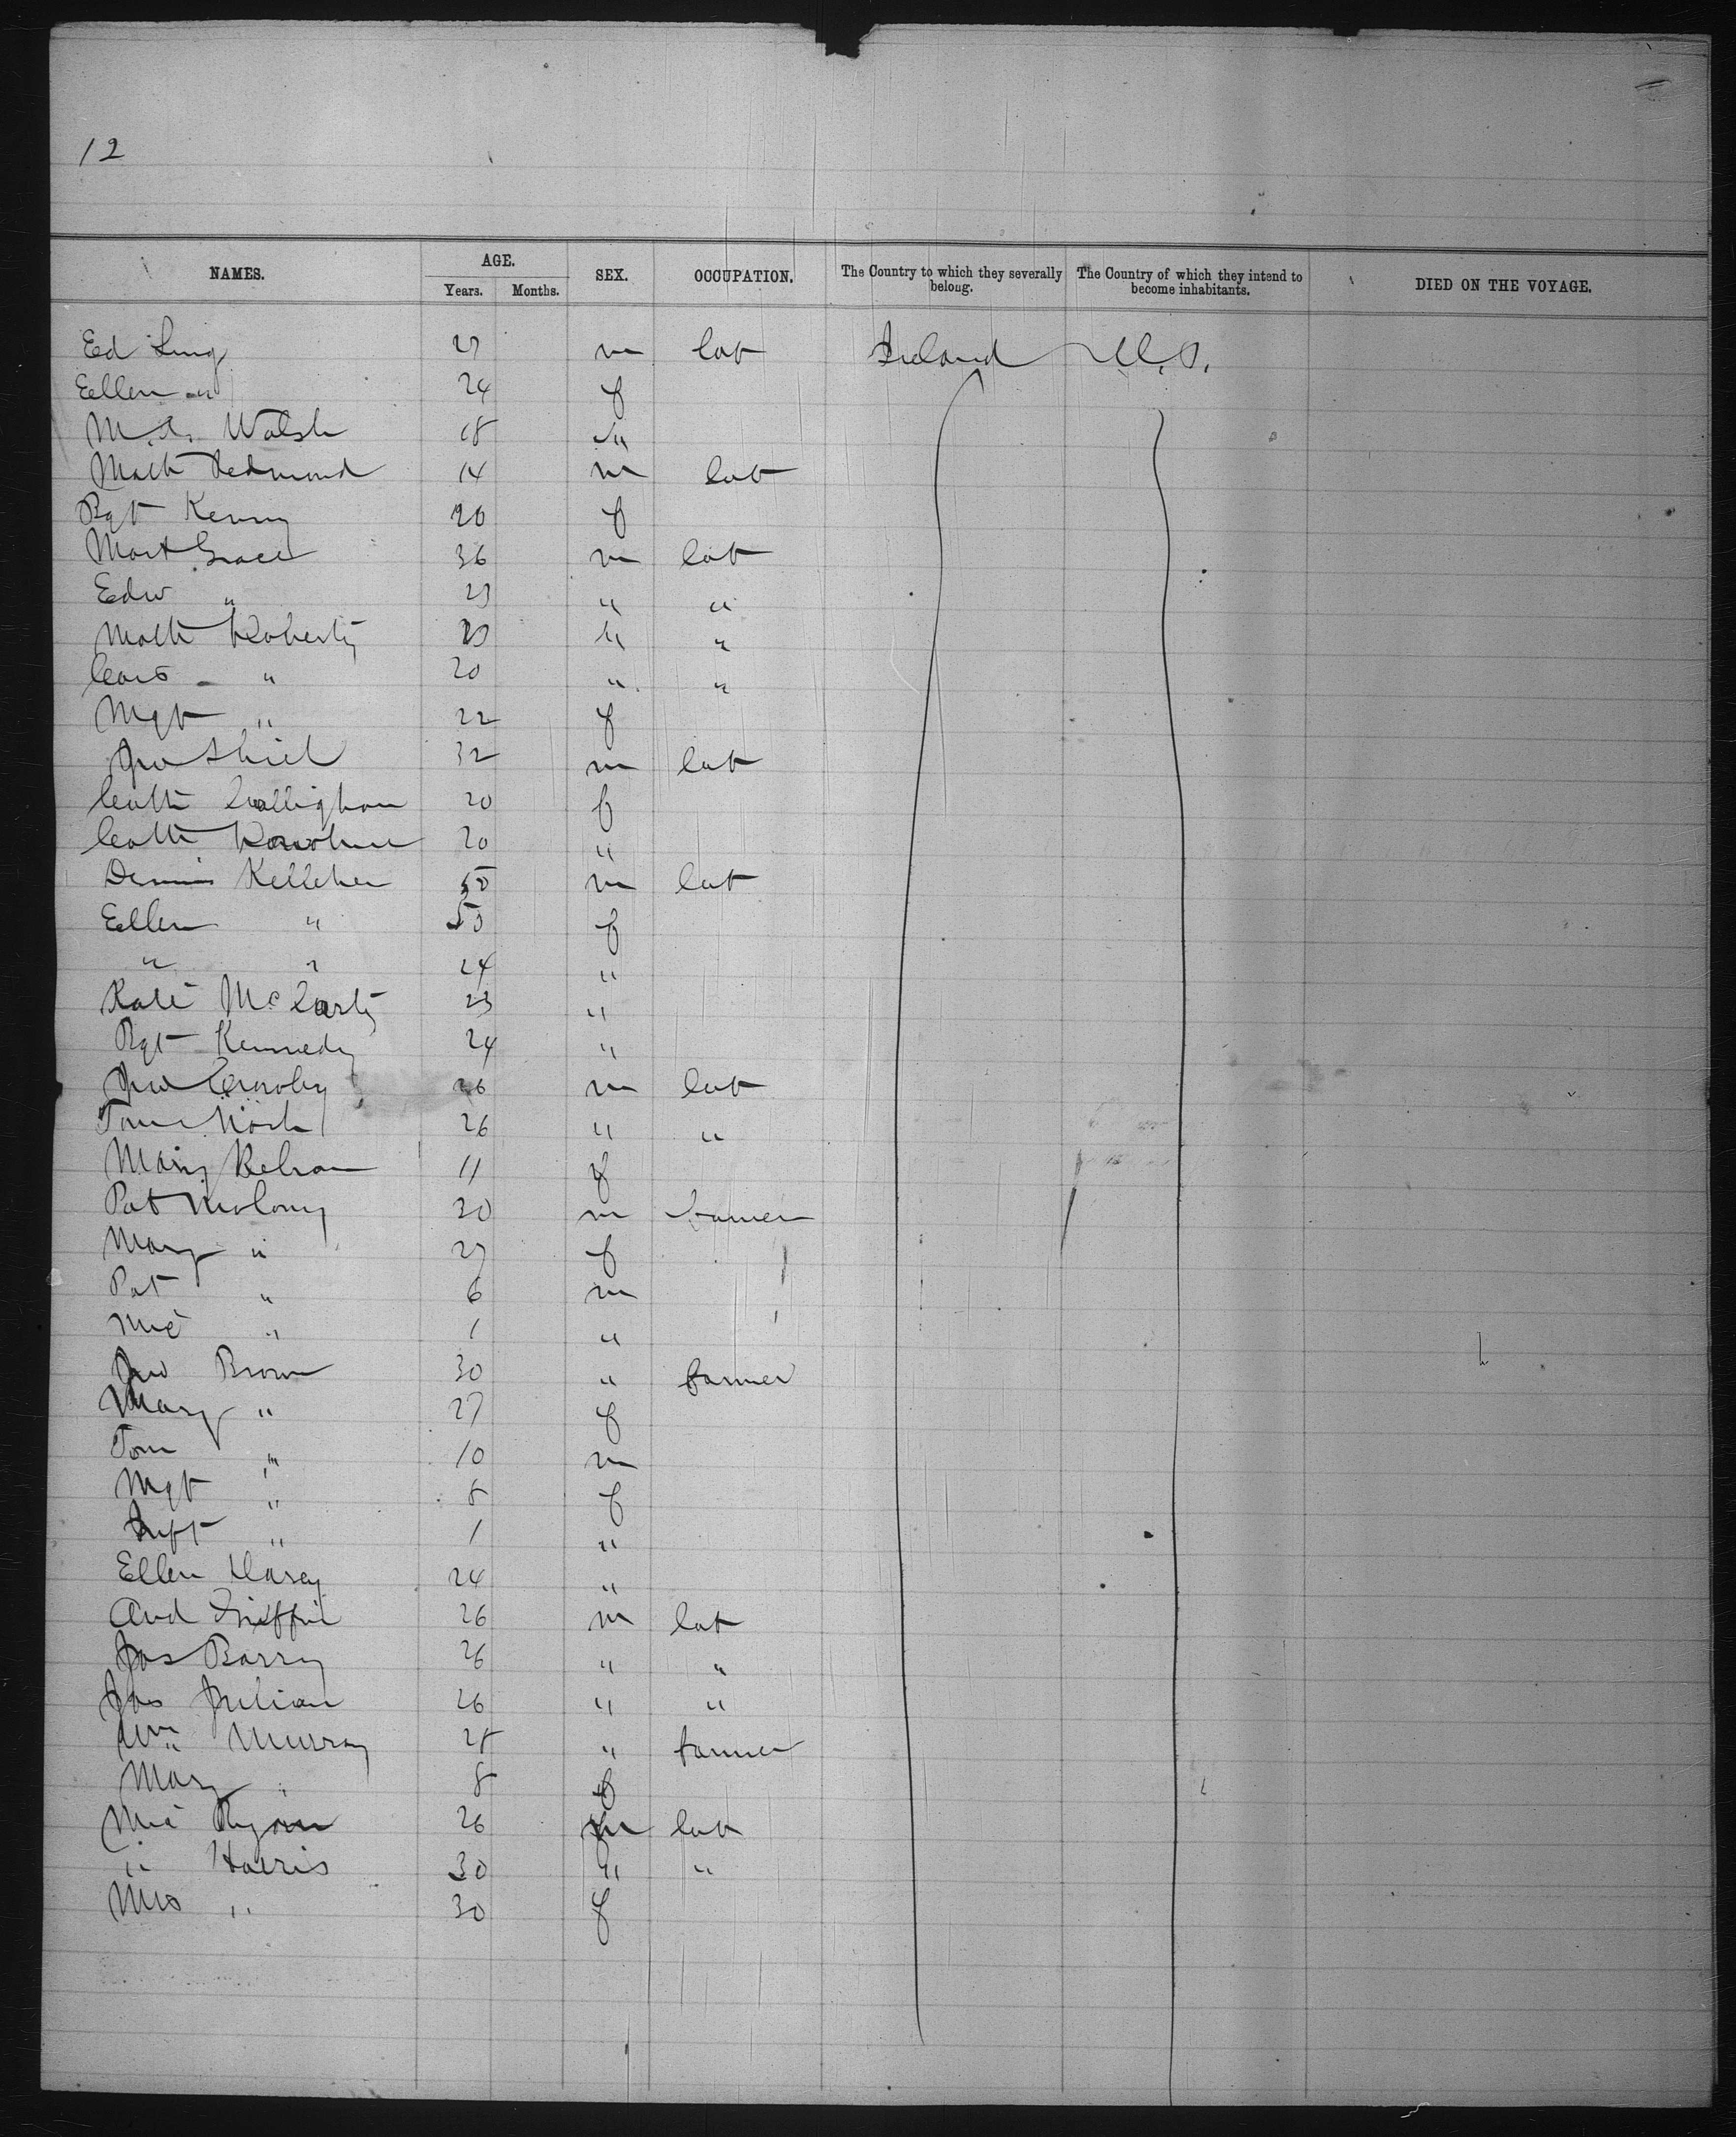 12
NAMES. AGE. Years. Months. SEX. OCCUPATION. The Country to which they severally belong. The Country of which they intend to become inhabitants. DIED ON THE VOYAGE.
Ed 27 m lab Ireland U.S.
Ellen " 24 f
M. A. Walsh 18 "
Math Redmond 14 m lab
Bgt Kenny 20 f
Mart Grace 36 m lab
Edw " 23 " "
Math " "
" 20 " "
Mgt " 22 f
Jno Shiel 32 m lab
Cath Callighan 20 f
Cath Donohue 20 "
Dennis Kelleher 50 m lab
Ellen " 50 f
" " 24 "
Kate McCarty 23 "
Bgt Kennedy 24 "
Jno Crowley 26 m lab
Tom 26 " "
Mary 11 f
Pat Molony 30 m farmer
Mary " 27 f
Pat " 6 m
Mic " 1 "
Jno Brown 30 " farmer
Mary " 27 f
Tom " 10 m
Mgt " 8 f
Inft " 1 "
Ellen Darcy 24 "
And Griffin 26 m lab
Jas Barry 26 " "
Jas Julian 26 " "
Wm Murray 28 " farmer
Mary " 8 f
Mic Ryan 26 m lab
" Harris 30 " "
Mrs " 30 f